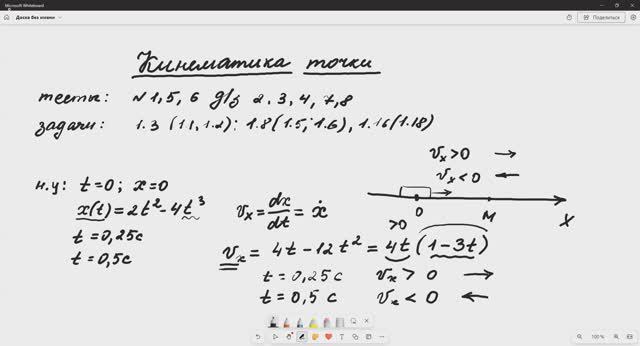 Microsoft Whiteboard
Доска без имени
Поделиться
Кинематика точки
тесты: № 1, 5, 6 д/з 2, 3, 4, 7, 8
задачи: 1.3 (1.1, 1.2); 1.8 (1.5; 1.6), 1.16 (1.18)
v_x > 0 →
v_x < 0 ←
н.у: t = 0; x = 0
x(t) = 2t² - 4t³
t = 0,25 c
t = 0,5 c
v_x = dx/dt = ẋ
0 M X
>0
v_x = 4t - 12t² = 4t (1 - 3t)
t = 0,25 c v_x > 0 →
t = 0,5 c v_x < 0 ←
100 %